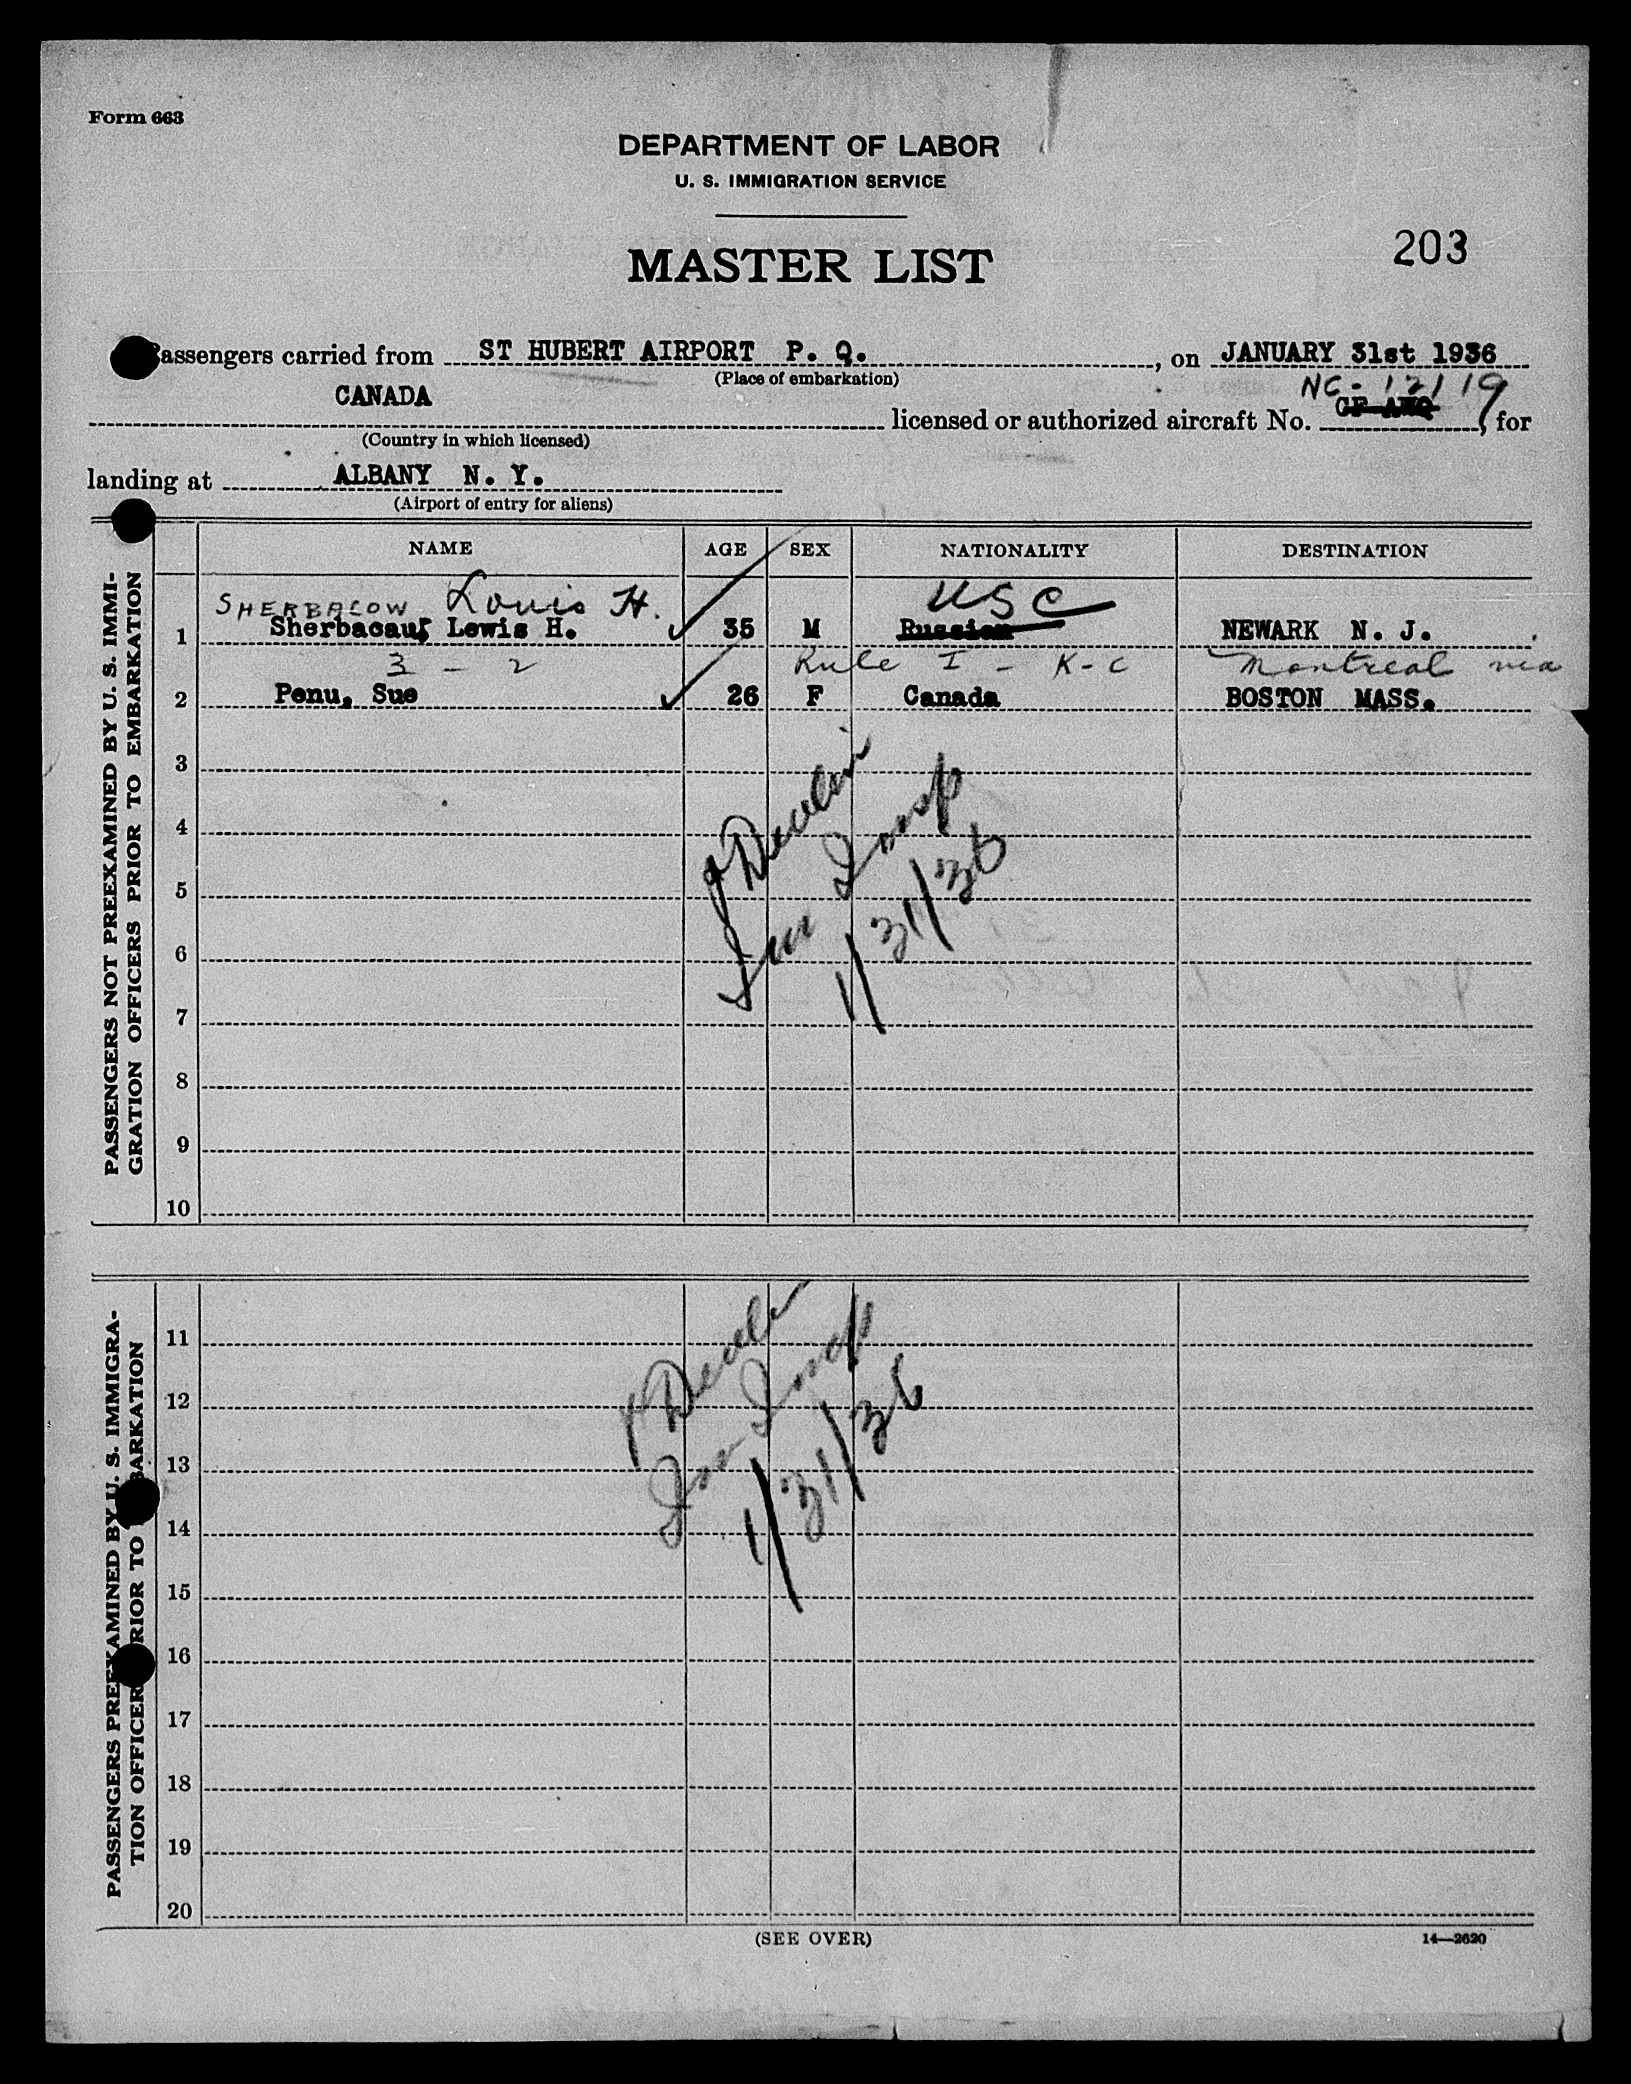 Form 663
DEPARTMENT OF LABOR
U. S. IMMIGRATION SERVICE
MASTER LIST
203
Passengers carried from ST HUBERT AIRPORT P. Q., on JANUARY 31st 1936
(Place of embarkation)
NC-12119
CANADA licensed or authorized aircraft No. CF AWQ, for
(Country in which licensed)
landing at ALBANY N. Y.
(Airport of entry for aliens)
PASSENGERS NOT PREEXAMINED BY U. S. IMMI-
GRATION OFFICERS PRIOR TO EMBARKATION
NAME AGE SEX NATIONALITY DESTINATION
SHERBACOW Louis H. USC
1 Sherbacau, Lewis H. 35 M Russian NEWARK N. J.
3 - 2 Rule I - K-C Montreal via
2 Penu, Sue 26 F Canada BOSTON MASS.
3
4
5
6
7
8
9
10
Imm Insp
1/31/36
PASSENGERS PREEXAMINED BY U. S. IMMIGRA-
TION OFFICERS PRIOR TO EMBARKATION
11
12
13
14
15
16
17
18
19
20
Imm Insp
1/31/36
(SEE OVER)
14—2620